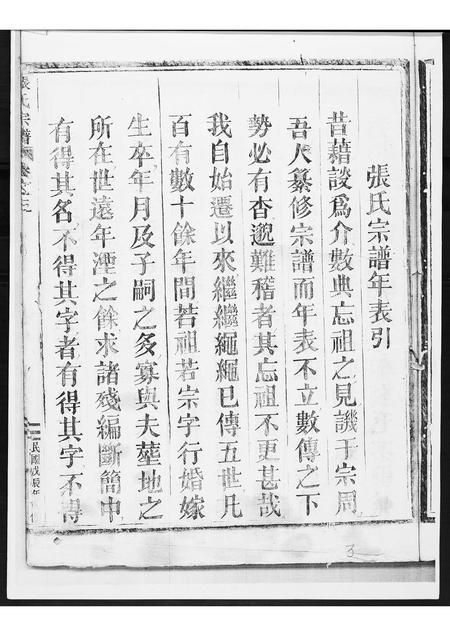 張氏宗譜年表引
昔藉談爲介數典忘祖之見譏于宗周
吾人纂修宗譜而年表不立數傳之下
勢必有杳邈難稽者其忘祖不更甚哉
我自始遷以來繼繼繩繩已傳五世凡
百有數十餘年間若祖若宗字行婚嫁
生卒年月及子嗣之多寡與夫塟地之
所在世遠年湮之餘求諸殘編斷簡中
有得其名不得其字者有得其字不得
張氏宗譜 卷之三
民國戊辰年
3